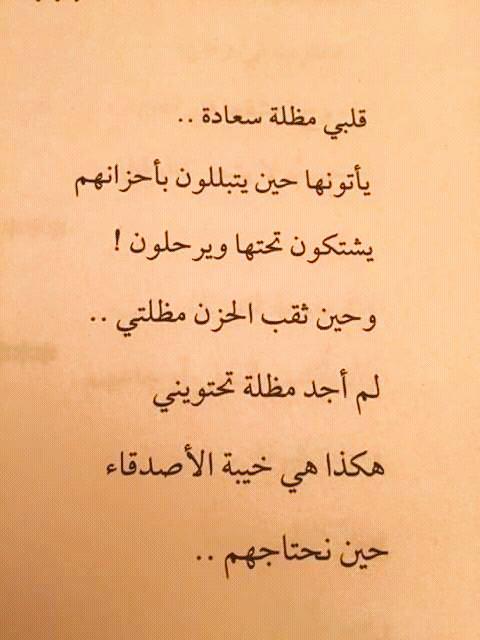 قلبي مظلة سعادة ..
يأتونها حين يتبللون بأحزانهم
يشتكون تحتها ويرحلون !
وحين ثقب الحزن مظلتي ..
لم أجد مظلة تحتويني
هكذا هي خيبة الأصدقاء
حين نحتاجهم ..